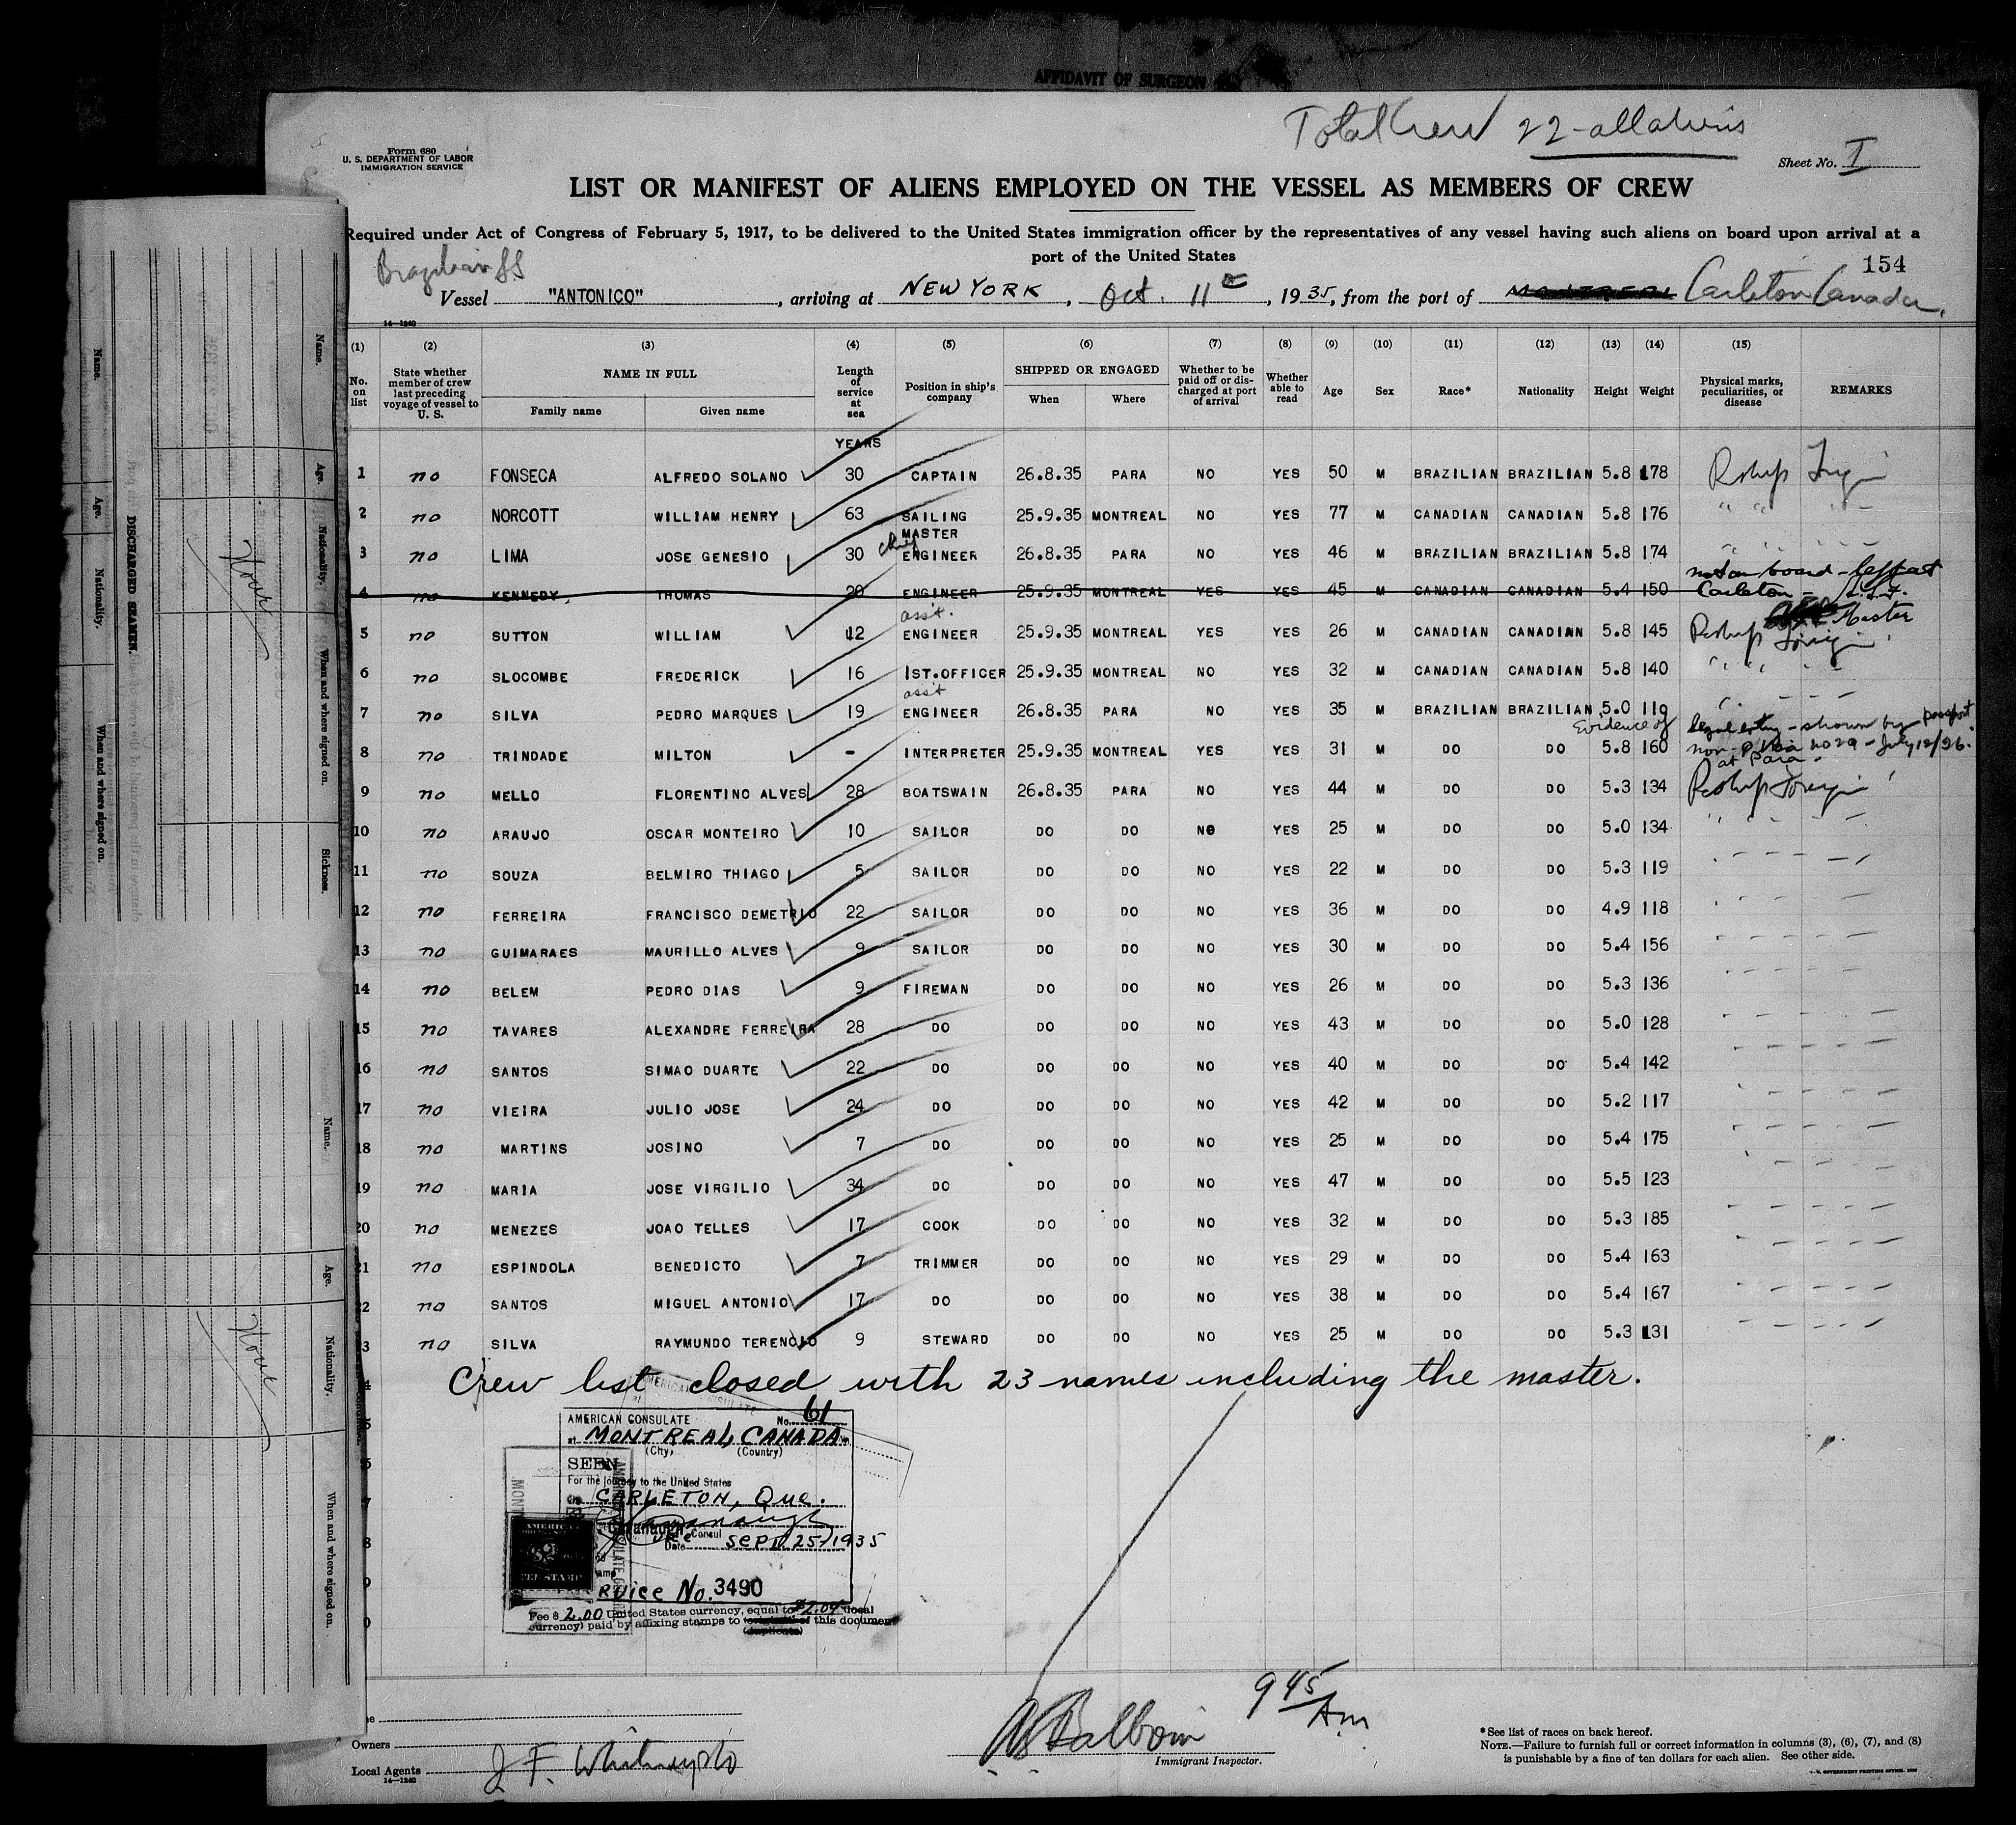 AFFIDAVIT OF SURGEON
Total Crew 22 - all aliens
Form 680
U. S. DEPARTMENT OF LABOR
IMMIGRATION SERVICE
Sheet No. I
LIST OR MANIFEST OF ALIENS EMPLOYED ON THE VESSEL AS MEMBERS OF CREW
Required under Act of Congress of February 5, 1917, to be delivered to the United States immigration officer by the representatives of any vessel having such aliens on board upon arrival at a
port of the United States
154
Brazilian SS
Vessel "ANTONICO", arriving at NEW YORK, Oct. 11, 1935, from the port of MONTREAL Carleton Canada
14—1240
(1) (2) (3) (4) (5) (6) (7) (8) (9) (10) (11) (12) (13) (14) (15)
No. on list State whether member of crew last preceding voyage of vessel to U. S. NAME IN FULL Family name Given name Length of service at sea Position in ship's company SHIPPED OR ENGAGED When Where Whether to be paid off or discharged at port of arrival Whether able to read Age Sex Race* Nationality Height Weight Physical marks, peculiarities, or disease REMARKS
YEARS
1 no FONSECA ALFREDO SOLANO 30 CAPTAIN 26.8.35 PARA NO YES 50 M BRAZILIAN BRAZILIAN 5.8 178 Reship Foreign
2 no NORCOTT WILLIAM HENRY 63 SAILING MASTER 25.9.35 MONTREAL NO YES 77 M CANADIAN CANADIAN 5.8 176 " " " "
3 no LIMA JOSE GENESIO 30 chief ENGINEER 26.8.35 PARA NO YES 46 M BRAZILIAN BRAZILIAN 5.8 174 " "
4 no KENNEDY, THOMAS 20 ENGINEER 25.9.35 MONTREAL YES YES 45 M CANADIAN CANADIAN 5.4 150 not on board - left at Carleton - Master
5 no SUTTON WILLIAM 12 ass't. ENGINEER 25.9.35 MONTREAL YES YES 26 M CANADIAN CANADIAN 5.8 145 Reship Foreign
6 no SLOCOMBE FREDERICK 16 1ST.OFFICER 25.9.35 MONTREAL NO YES 32 M CANADIAN CANADIAN 5.8 140 " "
7 no SILVA PEDRO MARQUES 19 ass't ENGINEER 26.8.35 PARA NO YES 35 M BRAZILIAN BRAZILIAN 5.0 119 "
8 no TRINDADE MILTON - INTERPRETER 25.9.35 MONTREAL YES YES 31 M DO DO 5.8 160 Evidence of legal entry - shown by passport non- visa no 29 - July 12/26. at Para.
9 no MELLO FLORENTINO ALVES 28 BOATSWAIN 26.8.35 PARA NO YES 44 M DO DO 5.3 134 Reship Foreign
10 no ARAUJO OSCAR MONTEIRO 10 SAILOR DO DO NO YES 25 M DO DO 5.0 134 "
11 no SOUZA BELMIRO THIAGO 5 SAILOR DO DO NO YES 22 M DO DO 5.3 119
12 no FERREIRA FRANCISCO DEMETRIO 22 SAILOR DO DO NO YES 36 M DO DO 4.9 118
13 no GUIMARAES MAURILLO ALVES 9 SAILOR DO DO NO YES 30 M DO DO 5.4 156
14 no BELEM PEDRO DIAS 9 FIREMAN DO DO NO YES 26 M DO DO 5.3 136
15 no TAVARES ALEXANDRE FERREIRA 28 DO DO DO NO YES 43 M DO DO 5.0 128
16 no SANTOS SIMAO DUARTE 22 DO DO DO NO YES 40 M DO DO 5.4 142
17 no VIEIRA JULIO JOSE 24 DO DO DO NO YES 42 M DO DO 5.2 117
18 no MARTINS JOSINO 7 DO DO DO NO YES 25 M DO DO 5.4 175
19 no MARIA JOSE VIRGILIO 34 DO DO DO NO YES 47 M DO DO 5.5 123
20 no MENEZES JOAO TELLES 17 COOK DO DO NO YES 32 M DO DO 5.3 185
21 no ESPINDOLA BENEDICTO 7 TRIMMER DO DO NO YES 29 M DO DO 5.4 163
22 no SANTOS MIGUEL ANTONIO 17 DO DO DO NO YES 38 M DO DO 5.4 167
3 no SILVA RAYMUNDO TERENCIO 9 STEWARD DO DO NO YES 25 M DO DO 5.3 131
Crew list closed with 23 names including the master.
AMERICAN CONSULATE No. 61
at MONTREAL, CANADA
(City) (Country)
SEEN
For the journey to the United States
CARLETON, Que.
Cavanaugh
Vice Consul
Date SEPT. 25, 1935
Service No. 3490
Fee $ 2.00 United States currency, equal to $2.04 local
currency) paid by affixing stamps to (original) of this document
(duplicate)
9 45 Am
Owners
Immigrant Inspector.
Local Agents
14—1240
*See list of races on back hereof.
NOTE.—Failure to furnish full or correct information in columns (3), (6), (7), and (8)
is punishable by a fine of ten dollars for each alien. See other side.
U. S. GOVERNMENT PRINTING OFFICE
DISCHARGED SEAMEN.
Name.
Age.
Nationality.
When and where signed on.
Name.
Age.
Nationality.
When and where signed on.
Sickness.
None
Name.
Age.
Nationality.
When and where signed on.
None